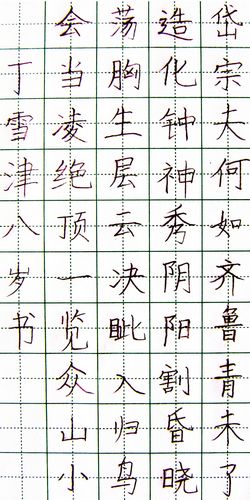 岱宗夫何如齐鲁青未了
造化钟神秀阴阳割昏晓
荡胸生层云决眦入归鸟
会当凌绝顶一览众山小
丁雪津八岁书